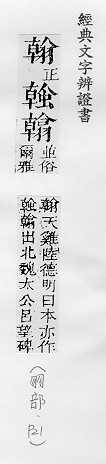 經典文字辨證書
翰正螒翰並俗
爾雅
翰天雞陸德明曰本亦作
螒翰出北魏太公呂望碑
(羽部·P21)